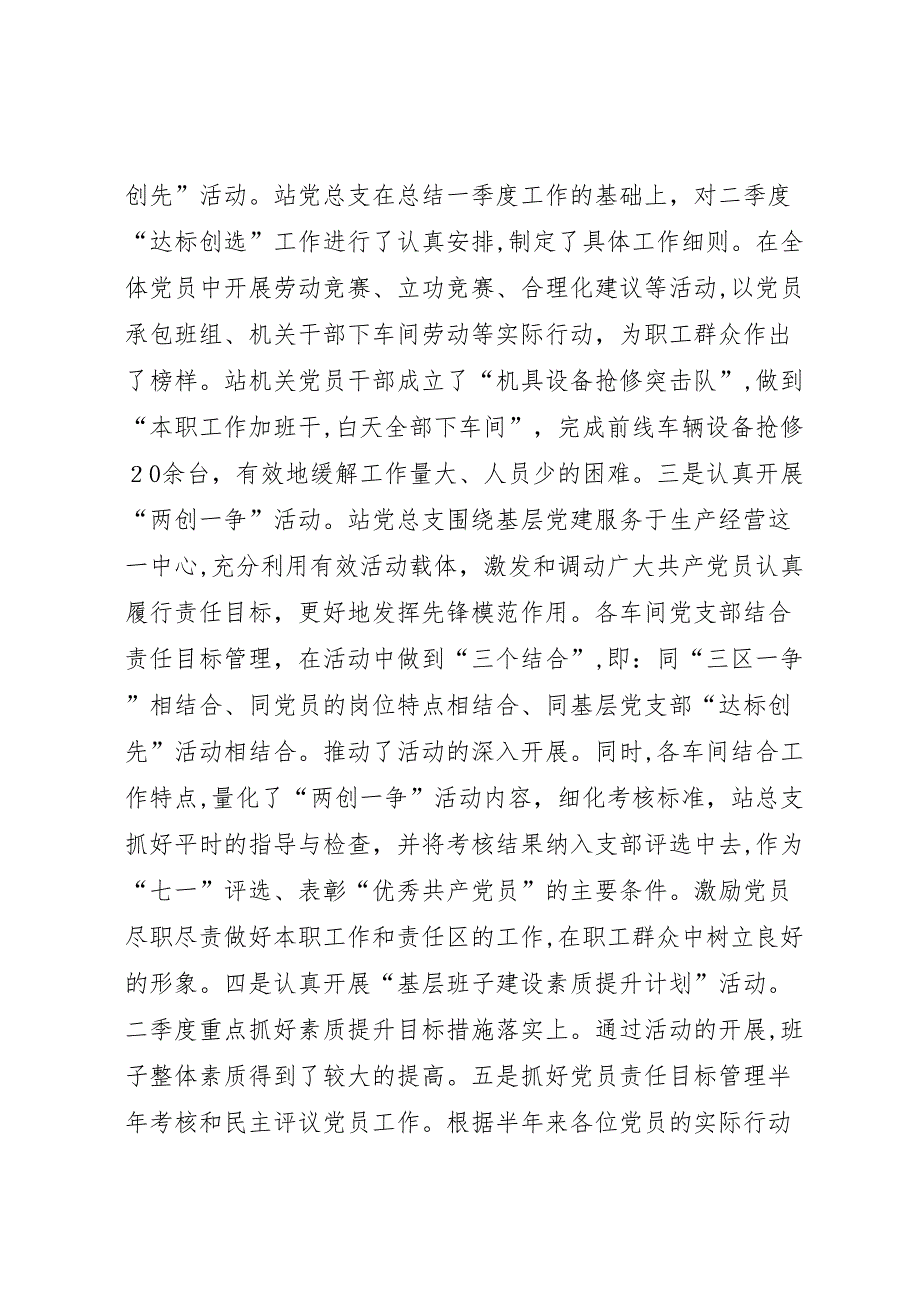 创先”活动。站党总支在总结一季度工作的基础上，对二季度
“达标创选”工作进行了认真安排,制定了具体工作细则。在全
体党员中开展劳动竞赛、立功竞赛、合理化建议等活动,以党员
承包班组、机关干部下车间劳动等实际行动，为职工群众作出
了榜样。站机关党员干部成立了“机具设备抢修突击队”,做到
“本职工作加班干,白天全部下车间”，完成前线车辆设备抢修
20余台，有效地缓解工作量大、人员少的困难。三是认真开展
“两创一争”活动。站党总支围绕基层党建服务于生产经营这
一中心,充分利用有效活动载体，激发和调动广大共产党员认真
履行责任目标，更好地发挥先锋模范作用。各车间党支部结合
责任目标管理，在活动中做到“三个结合”,即：同“三区一争
”相结合、同党员的岗位特点相结合、同基层党支部“达标创
先”活动相结合。推动了活动的深入开展。同时,各车间结合工
作特点,量化了“两创一争”活动内容，细化考核标准，站总支
抓好平时的指导与检查，并将考核结果纳入支部评选中去,作为
“七一”评选、表彰“优秀共产党员”的主要条件。激励党员
尽职尽责做好本职工作和责任区的工作,在职工群众中树立良好
的形象。四是认真开展“基层班子建设素质提升计划”活动。
二季度重点抓好素质提升目标措施落实上。通过活动的开展,班
子整体素质得到了较大的提高。五是抓好党员责任目标管理半
年考核和民主评议党员工作。根据半年来各位党员的实际行动